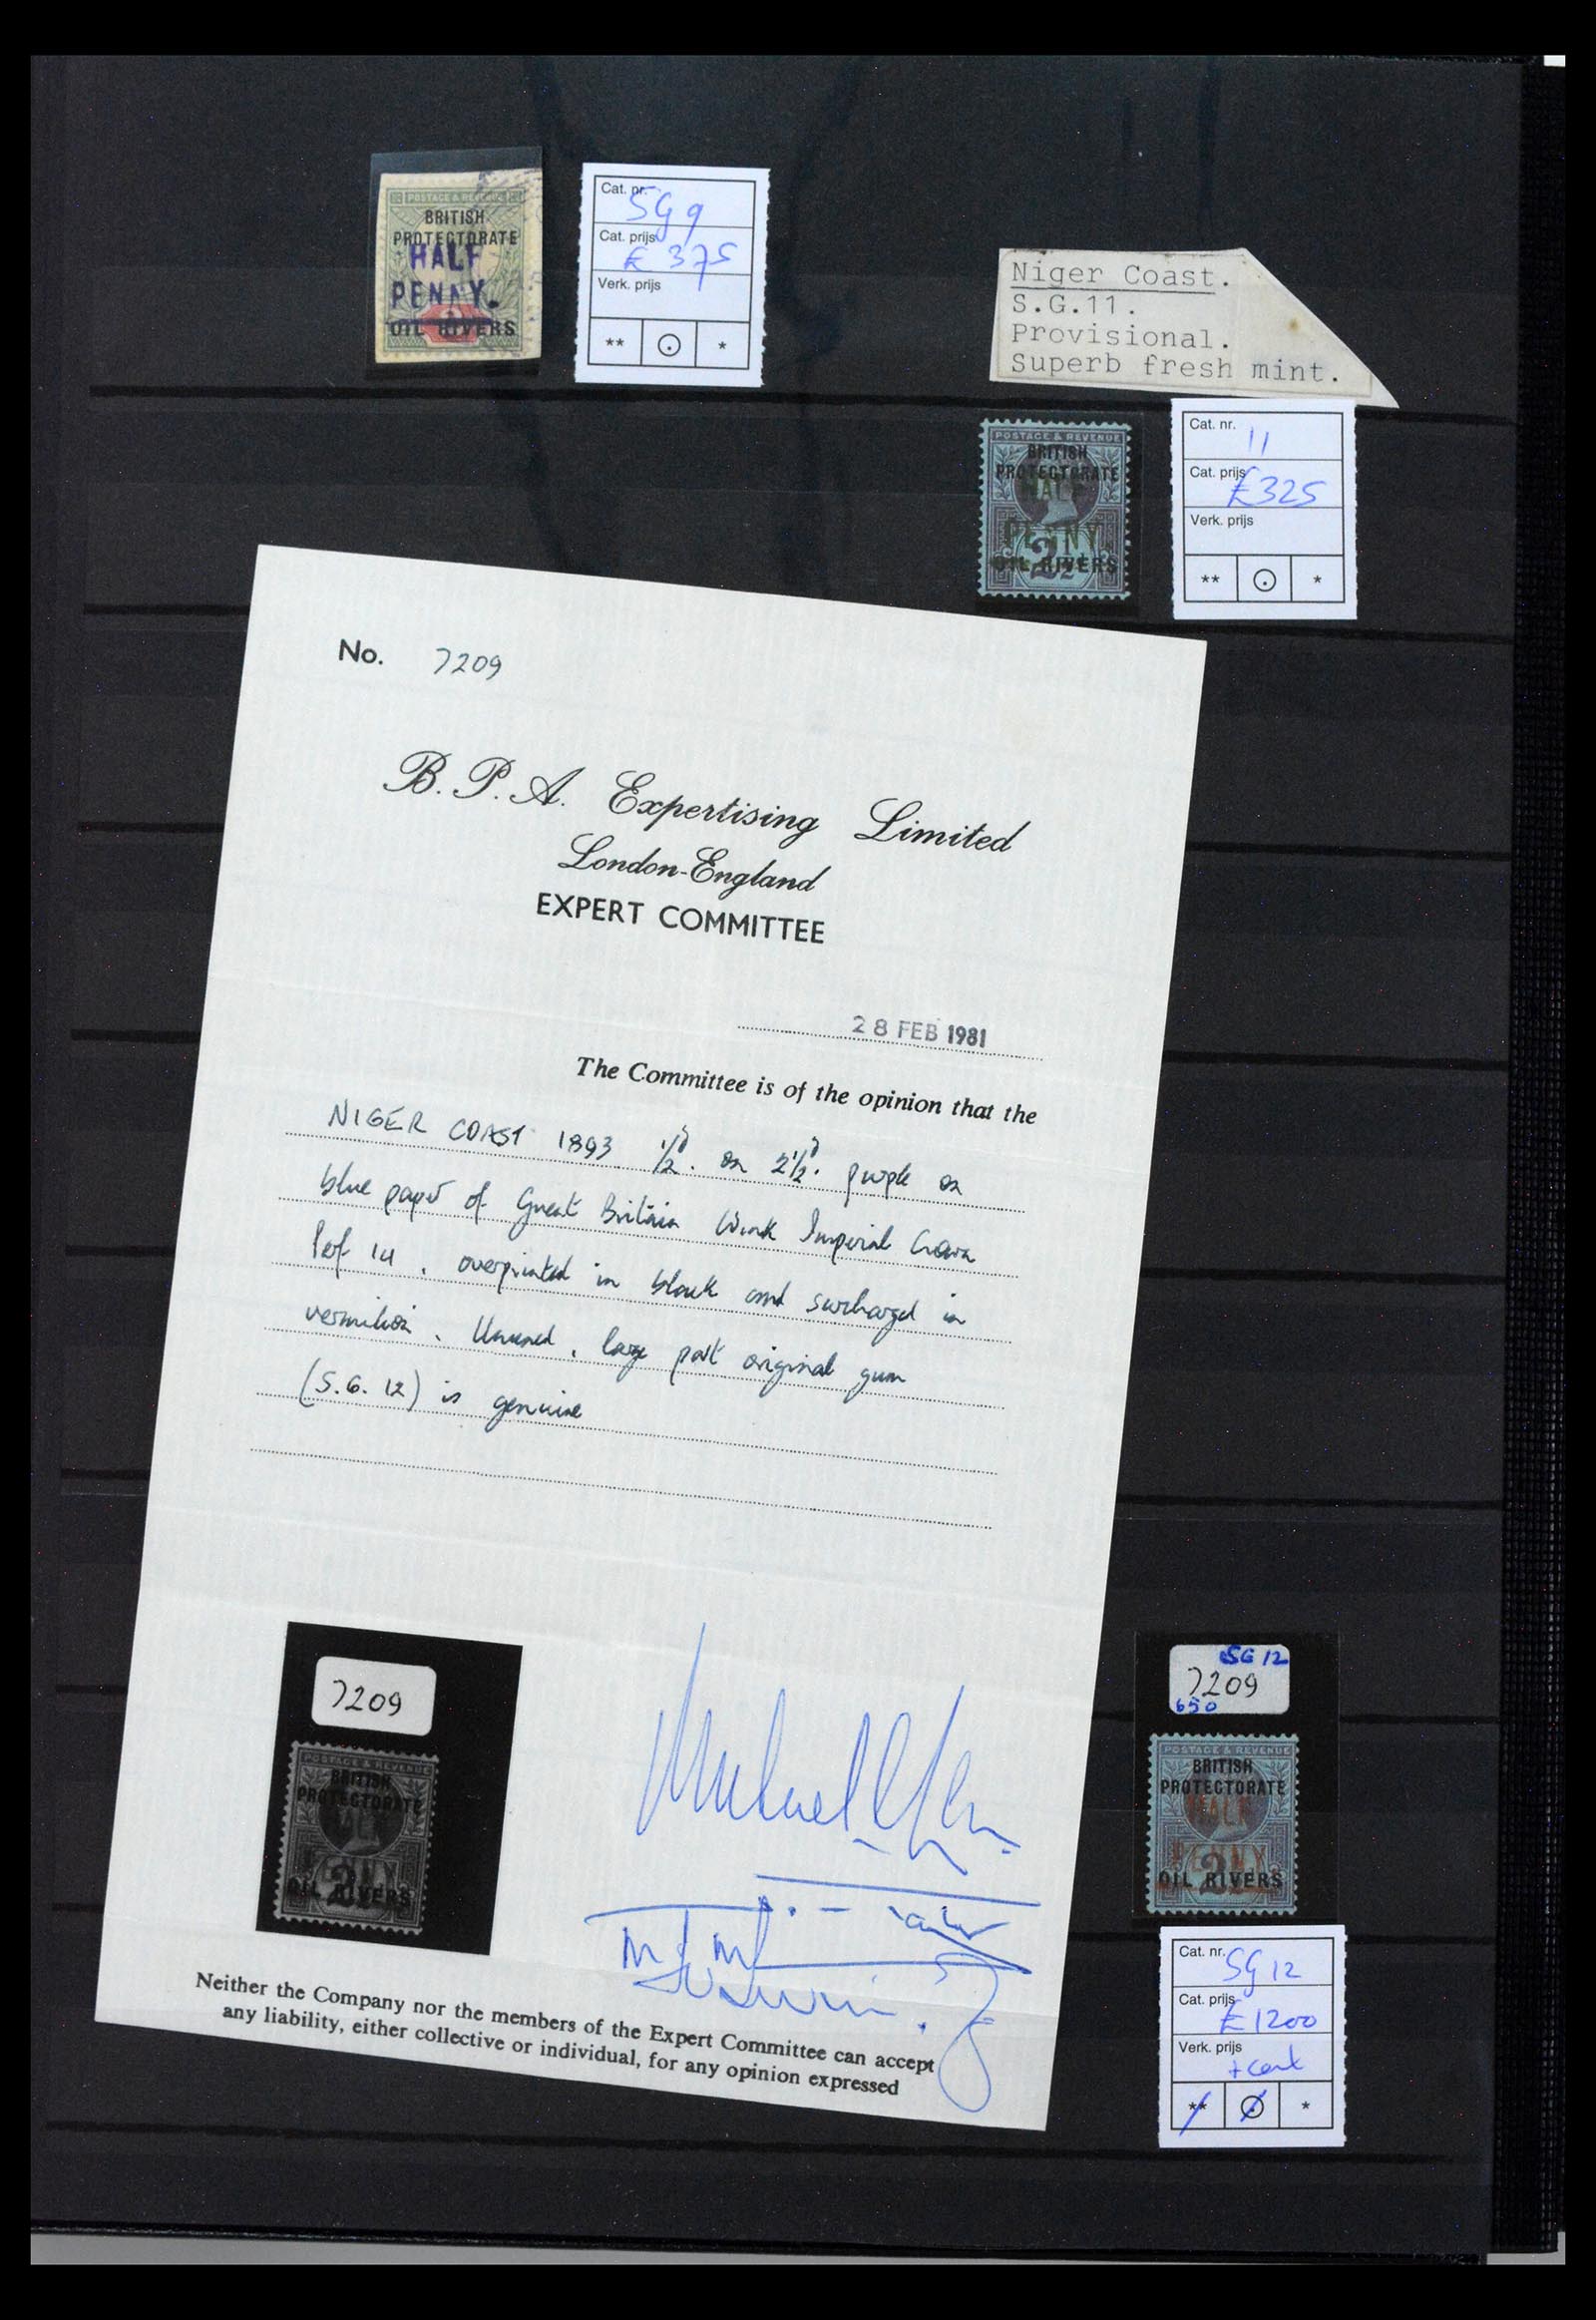 POSTAGE & REVENUE
BRITISH
PROTECTORATE
HALF
PENNY.
OIL RIVERS
Cat. nr. SG 9
Cat. prijs £ 375
Verk. prijs
** ⊙ *
Niger Coast.
S.G.11.
Provisional.
Superb fresh mint.
POSTAGE & REVENUE
BRITISH
PROTECTORATE
HALF
PENNY
2½
OIL RIVERS
Cat. nr. 11
Cat. prijs £325
Verk. prijs
** ⊙ *
No. 7209
B. P. A. Expertising Limited
London-England
EXPERT COMMITTEE
28 FEB 1981
The Committee is of the opinion that the
NIGER COAST 1893 ½d. on 2½d. purple on
blue paper of Great Britain Wmk Imperial Crown
Perf 14, overprinted in black and surcharged in
vermilion. Unused, large part original gum
(S.G. 12) is genuine
7209
POSTAGE & REVENUE
BRITISH
PROTECTORATE
HALF
PENNY
2½
OIL RIVERS
Neither the Company nor the members of the Expert Committee can accept
any liability, either collective or individual, for any opinion expressed
SG 12
7209
650
POSTAGE & REVENUE
BRITISH
PROTECTORATE
HALF
PENNY
2½
OIL RIVERS
Cat. nr. SG 12
Cat. prijs £1200
Verk. prijs + cert
** ⊙ *